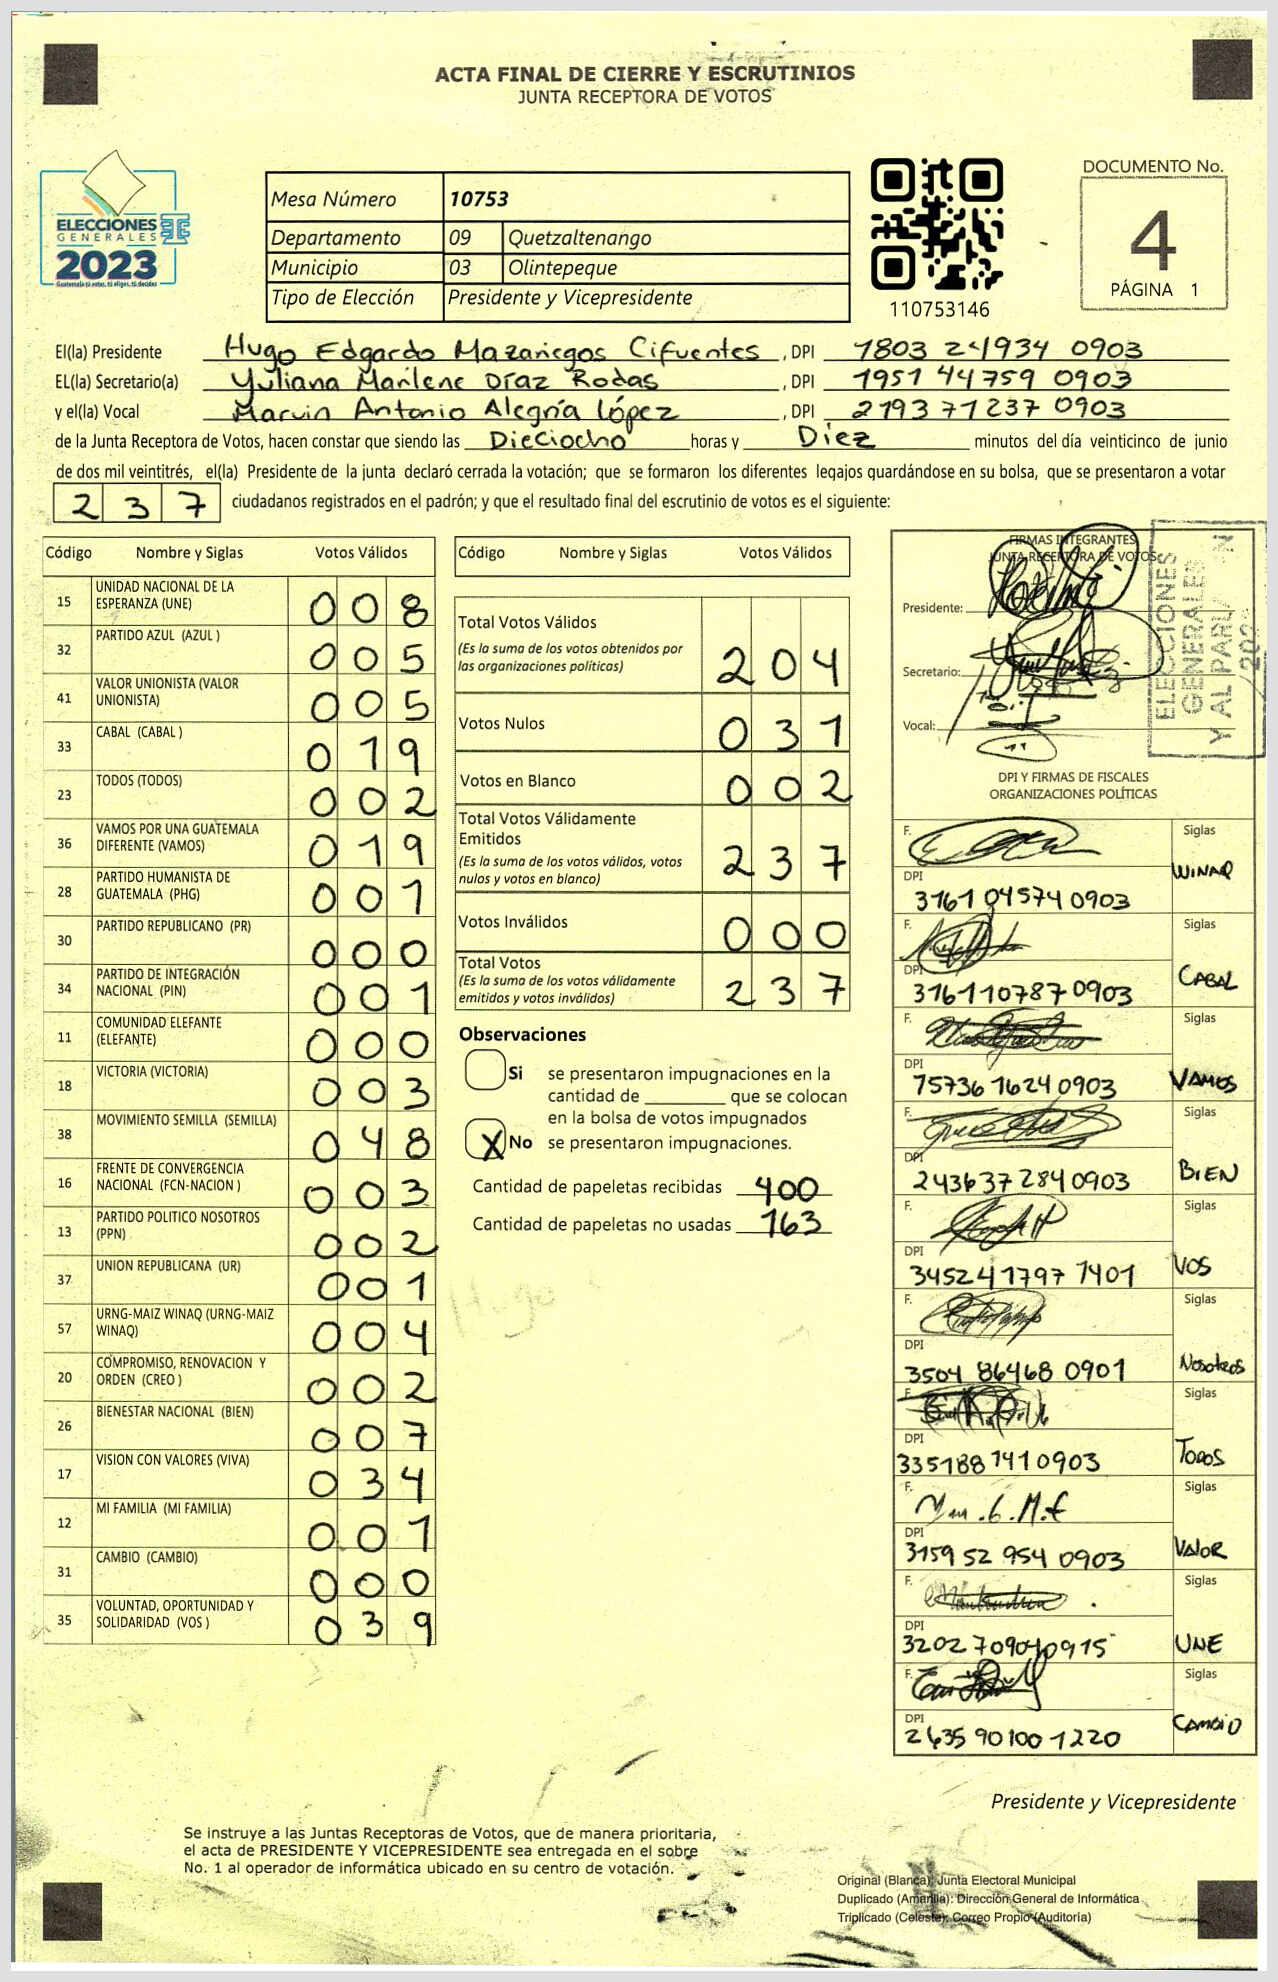 ACTA FINAL DE CIERRE Y ESCRUTINIOS
JUNTA RECEPTORA DE VOTOS
ELECCIONES
GENERALES
2023
Guatemala tú votas, tú eliges, tú decides
Mesa Número 10753
Departamento 09 Quetzaltenango
Municipio 03 Olintepeque
Tipo de Elección Presidente y Vicepresidente
110753146
DOCUMENTO No.
4
PÁGINA 1
El(la) Presidente Hugo Edgardo Mazariegos Cifuentes , DPI 1803 24934 0903
EL(la) Secretario(a) Yuliana Marlene Díaz Rodas , DPI 1951 44759 0903
y el(la) Vocal Marvin Antonio Alegría López , DPI 2193 71237 0903
de la Junta Receptora de Votos, hacen constar que siendo las Dieciocho horas y Diez minutos del día veinticinco de junio
de dos mil veintitrés, el(la) Presidente de la junta declaró cerrada la votación; que se formaron los diferentes legajos guardándose en su bolsa, que se presentaron a votar
237 ciudadanos registrados en el padrón; y que el resultado final del escrutinio de votos es el siguiente:
Código Nombre y Siglas Votos Válidos
15 UNIDAD NACIONAL DE LA ESPERANZA (UNE) 008
32 PARTIDO AZUL (AZUL ) 005
41 VALOR UNIONISTA (VALOR UNIONISTA) 005
33 CABAL (CABAL ) 019
23 TODOS (TODOS) 002
36 VAMOS POR UNA GUATEMALA DIFERENTE (VAMOS) 019
28 PARTIDO HUMANISTA DE GUATEMALA (PHG) 001
30 PARTIDO REPUBLICANO (PR) 000
34 PARTIDO DE INTEGRACIÓN NACIONAL (PIN) 001
11 COMUNIDAD ELEFANTE (ELEFANTE) 000
18 VICTORIA (VICTORIA) 003
38 MOVIMIENTO SEMILLA (SEMILLA) 048
16 FRENTE DE CONVERGENCIA NACIONAL (FCN-NACION ) 003
13 PARTIDO POLITICO NOSOTROS (PPN) 002
37 UNION REPUBLICANA (UR) 001
57 URNG-MAIZ WINAQ (URNG-MAIZ WINAQ) 004
20 COMPROMISO, RENOVACION Y ORDEN (CREO ) 002
26 BIENESTAR NACIONAL (BIEN) 007
17 VISION CON VALORES (VIVA) 034
12 MI FAMILIA (MI FAMILIA) 001
31 CAMBIO (CAMBIO) 000
35 VOLUNTAD, OPORTUNIDAD Y SOLIDARIDAD (VOS ) 039
Código Nombre y Siglas Votos Válidos
Total Votos Válidos 204
(Es la suma de los votos obtenidos por
las organizaciones políticas)
Votos Nulos 031
Votos en Blanco 002
Total Votos Válidamente
Emitidos 237
(Es la suma de los votos válidos, votos
nulos y votos en blanco)
Votos Inválidos 000
Total Votos 237
(Es la suma de los votos válidamente
emitidos y votos inválidos)
Observaciones
Si se presentaron impugnaciones en la
cantidad de ________ que se colocan
en la bolsa de votos impugnados
X No se presentaron impugnaciones.
Cantidad de papeletas recibidas 400
Cantidad de papeletas no usadas 163
Hugo
FIRMAS INTEGRANTES
JUNTA RECEPTORA DE VOTOS
Presidente:
Secretario:
Vocal:
ELECCIONES
GENERALES
Y AL PARL
DPI Y FIRMAS DE FISCALES
ORGANIZACIONES POLÍTICAS
F. Siglas
DPI WINAQ
3161 04574 0903
F. Siglas
DPI CABAL
3161 10787 0903
F. Siglas
DPI VAMOS
1573616240903
F. Siglas
DPI BIEN
2436372840903
F. Siglas
DPI VOS
3452 41797 1401
F. Siglas
DPI Nosotros
3504 86468 0901
F. Siglas
DPI TODOS
3351887410903
F. Siglas
DPI VALOR
3159 52 954 0903
F. Siglas
DPI UNE
3202 709040915
F. Siglas
DPI CAMBIO
2635 90100 1220
Presidente y Vicepresidente
Se instruye a las Juntas Receptoras de Votos, que de manera prioritaria,
el acta de PRESIDENTE Y VICEPRESIDENTE sea entregada en el sobre
No. 1 al operador de informática ubicado en su centro de votación.
Original (Blanca): Junta Electoral Municipal
Duplicado (Amarilla): Dirección General de Informática
Triplicado (Celeste): Correo Propio (Auditoría)